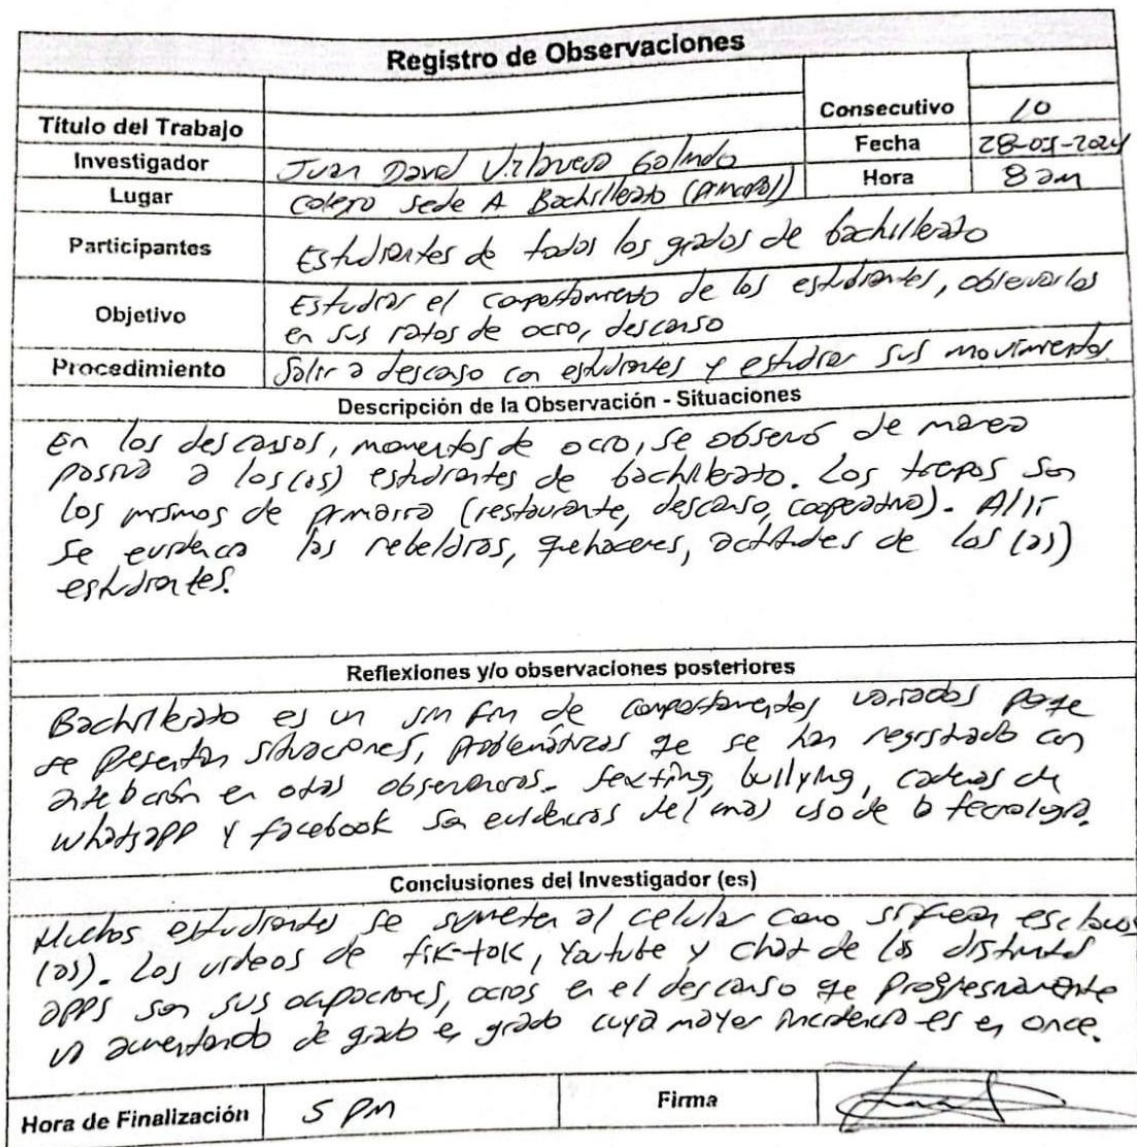 Registro de Observaciones
Título del Trabajo
Consecutivo 10
Investigador Juan David Galindo
Fecha 28-05-2024
Lugar Colegio Sede A Bachillerato (principal)
Hora 8 am
Participantes Estudiantes de todos los grados de bachillerato
Objetivo Estudiar el comportamiento de los estudiantes, observarlos
en sus ratos de ocio, descanso
Procedimiento Salir a descanso con estudiantes y estudiar sus movimientos.
Descripción de la Observación - Situaciones
En los descansos, momentos de ocio, se observó de manera
pasiva a los(as) estudiantes de bachillerato. Los tiempos son
los mismos de primaria (restaurante, descanso, cooperativa). Allí
se evidencia las rebeldías, quehaceres, actitudes de los (as)
estudiantes.
Reflexiones y/o observaciones posteriores
Bachillerato es un sin fin de comportamientos variados porque
se presentan situaciones, problemáticas que se han registrado con
antelación en otras observaciones. Sexting, bullying, cadenas de
whatsapp y facebook son evidencias del mal uso de la tecnología.
Conclusiones del Investigador (es)
Muchos estudiantes se someten al celular como si fueran esclavos
(as). Los videos de tik-tok, Youtube y chat de las distintas
apps son sus ocupaciones, ocios en el descanso que progresivamente
va aumentando de grado en grado cuya mayor incidencia es en once.
Hora de Finalización 5 PM
Firma